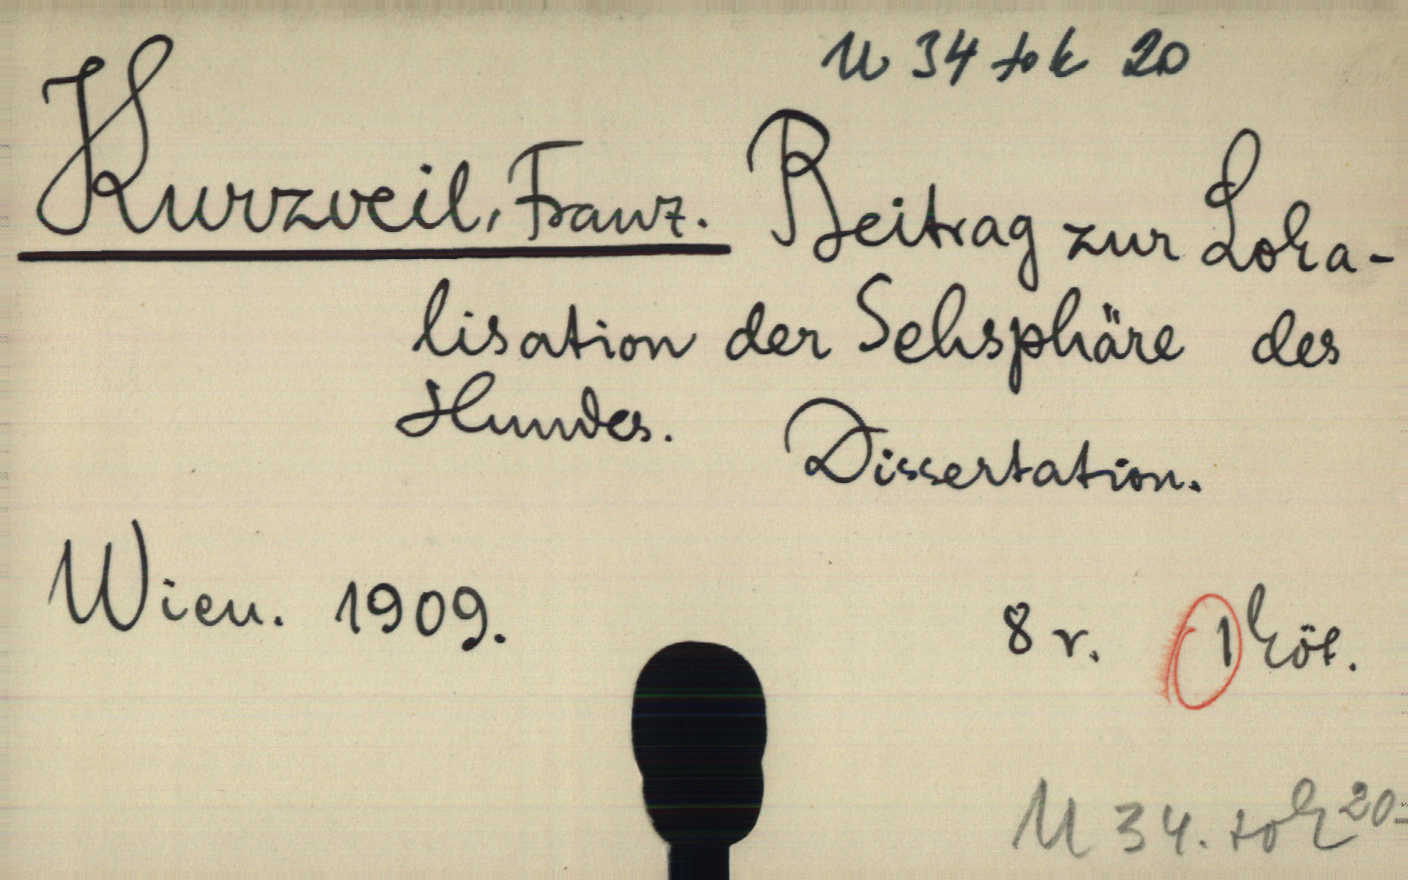 U 34 tok 20
Kurzveil, Franz. Beitrag zur Loka-
lisation der Sehsphäre des
Hundes. Dissertation.
Wien. 1909. 8 r. 1 köt.
U 34. tok 20